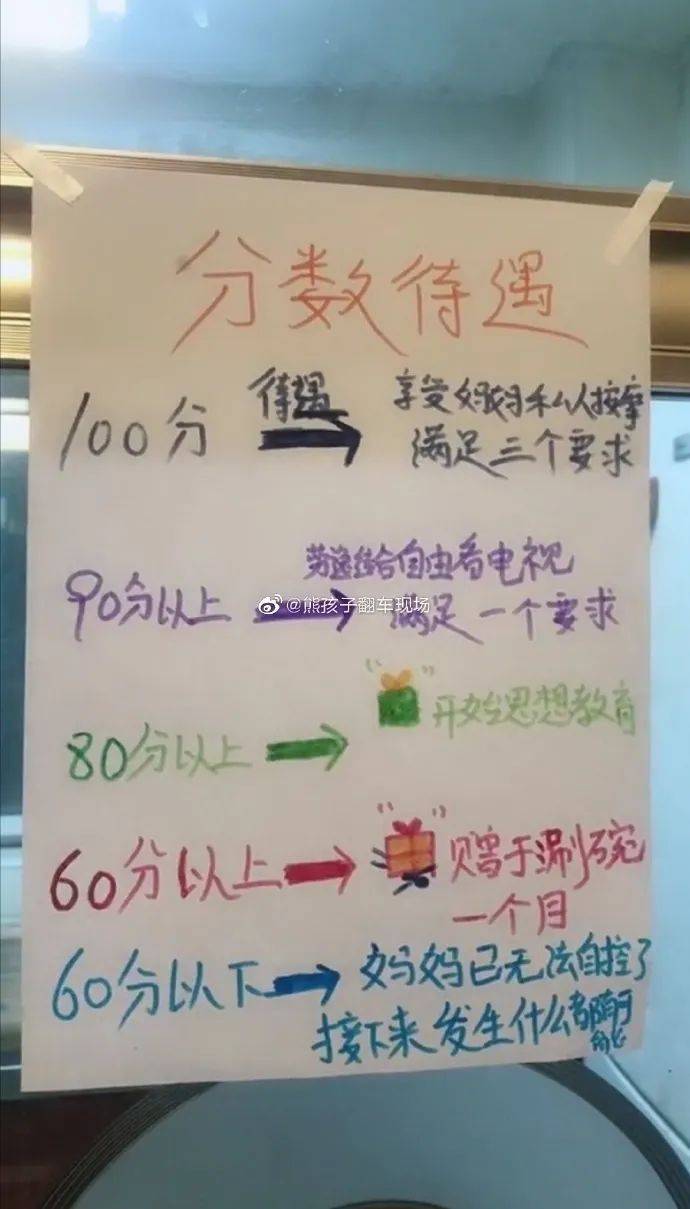 分数待遇
待遇
100分 享受妈妈私人按摩
满足三个要求
劳逸结合自由看电视
90分以上 满足一个要求
@熊孩子翻车现场
80分以上 开始思想教育
60分以上 赠于涮碗
一个月
60分以下 妈妈已无法自控了
接下来发生什么都有可能